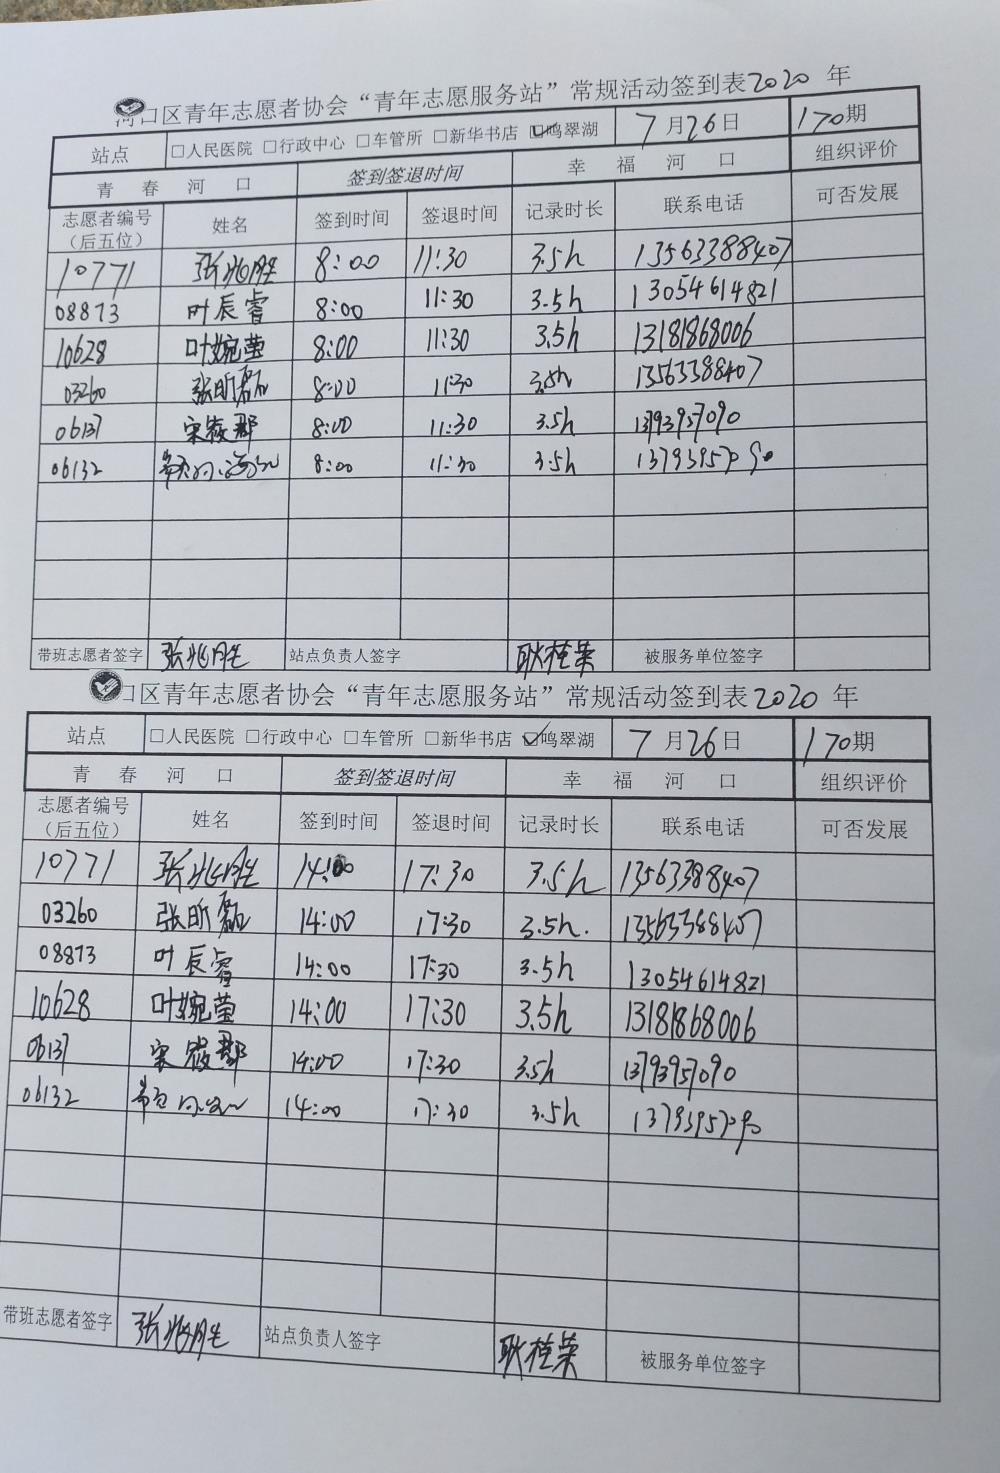 河口区青年志愿者协会“青年志愿服务站”常规活动签到表2020年
站点 □人民医院 □行政中心 □车管所 □新华书店 ☑鸣翠湖 7月26日 170期
青春河口 签到签退时间 幸福河口 组织评价
志愿者编号（后五位） 姓名 签到时间 签退时间 记录时长 联系电话 可否发展
10771 张兆胜 8:00 11:30 3.5h 13563388407
08873 叶辰睿 8:00 11:30 3.5h 13054614821
10628 叶婉莹 8:00 11:30 3.5h 13181868006
03260 张昕磊 8:00 11:30 3.5h 13563388407
06137 宋筱郡 8:00 11:30 3.5h 13793957090
06132 8:00 11:30 3.5h 13793957090
带班志愿者签字 张兆胜 站点负责人签字 耿桂荣 被服务单位签字
口区青年志愿者协会“青年志愿服务站”常规活动签到表2020年
站点 □人民医院 □行政中心 □车管所 □新华书店 ☑鸣翠湖 7月26日 170期
青春河口 签到签退时间 幸福河口 组织评价
志愿者编号（后五位） 姓名 签到时间 签退时间 记录时长 联系电话 可否发展
10771 张兆胜 14:00 17:30 3.5h 13563388407
03260 张昕磊 14:00 17:30 3.5h. 13563388407
08873 叶辰睿 14:00 17:30 3.5h 13054614821
10628 叶婉莹 14:00 17:30 3.5h 13181868006
06137 宋筱郡 14:00 17:30 3.5h 13793957090
06132 14:00 17:30 3.5h 13793957090
带班志愿者签字 张兆胜 站点负责人签字 耿桂荣 被服务单位签字